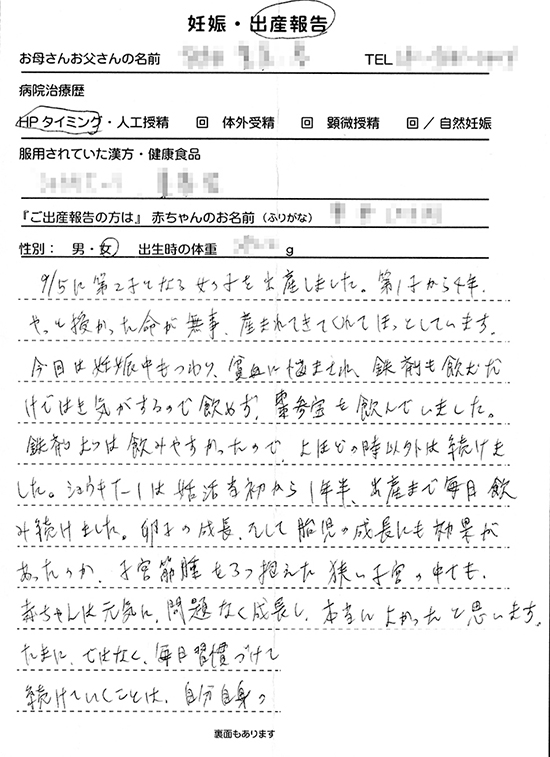 妊娠・出産報告
お母さんお父さんの名前 TEL
病院治療歴
HPタイミング・人工授精 回 体外受精 回 顕微授精 回／自然妊娠
服用されていた漢方・健康食品
『ご出産報告の方は』赤ちゃんのお名前（ふりがな）
性別： 男・女 出生時の体重 g
9/5に第2子となる女の子を出産しました。第1子から4年、
やっと授かった命が無事、産まれてきてくれてほっとしています。
今回は妊娠中もつわり、貧血に悩まされ、鉄剤も飲むだ
けではき気がするので飲めず、棗参宝を飲んでいました。
鉄剤よりは飲みやすかったので、よほどの時以外は続けま
した。ショウキT-1は妊活当初から1年半、出産まで毎日飲
み続けました。卵子の成長、そして胎児の成長にも効果が
あったのか、子宮筋腫を3つ抱えた狭い子宮の中でも、
赤ちゃんは元気に、問題なく成長し、本当によかったと思います。
たまに、ではなく、毎日習慣づけて
続けていくことは、自分自身の
裏面もあります